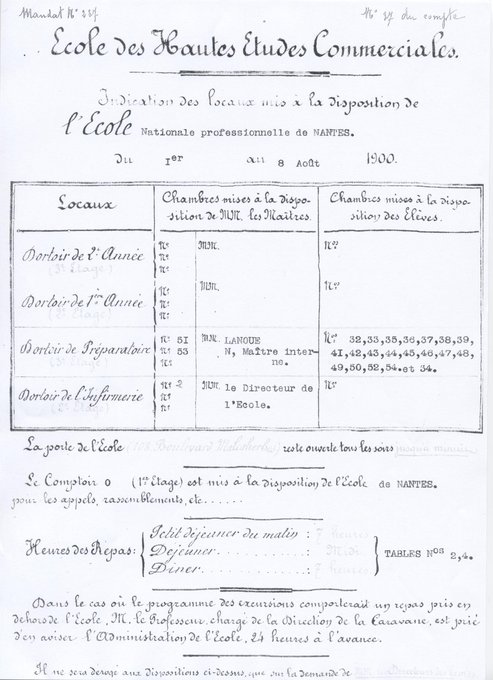 Mandat N° 227 N° 37 du compte
Ecole des Hautes Etudes Commerciales.
Indication des locaux mis à la disposition de
l'Ecole Nationale professionnelle de NANTES.
du Ier au 8 Août 1900.
Locaux
Chambres mises à la dispo-
sition de MM. les Maîtres.
Chambres mises à la dispo-
sition des Elèves.
Dortoir de 2e Année
(3e Etage)
Nos
No
No
MM.
Nos
Dortoir de 1ère Année
(2e Etage)
No
No
No
MM.
No
Dortoir de Préparatoire
No 51
No 53
No
MM. LANOUE
N, Maître inter-
ne.
No 32,33,35,36,37,38,39,
41,42,43,44,45,46,47,48,
49,50,52,54.et 34.
Dortoir de l'Infirmerie
No 2
No
No
MM. le Directeur de
l'Ecole.
No
La porte de l'Ecole (108, Boulevard Malesherbes) reste ouverte tous les soirs jusqu'à minuit.
Le Comptoir O (1er Etage) est mis à la disposition de l'Ecole de NANTES.
pour les appels, rassemblements, etc......
Heures des Repas:
Petit déjeuner du matin: 7 heures
Déjeuner.......... : Midi
Dîner............ : 7 heures
TABLES Nos 2,4.
Dans le cas où le programme des excursions comporterait un repas pris en
dehors de l'Ecole, M. le Professeur, chargé de la Direction de la Caravane, est prié
d'en aviser l'Administration de l'Ecole, 24 heures à l'avance.
Il ne sera dérogé aux dispositions ci-dessus, que sur la demande de